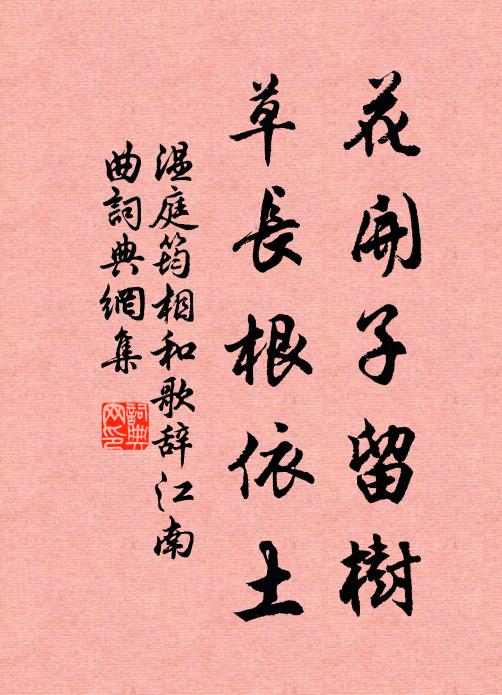 花開子留樹
草長根依土
温庭筠相和歌辞江南
曲詞典網集
詞典
网印